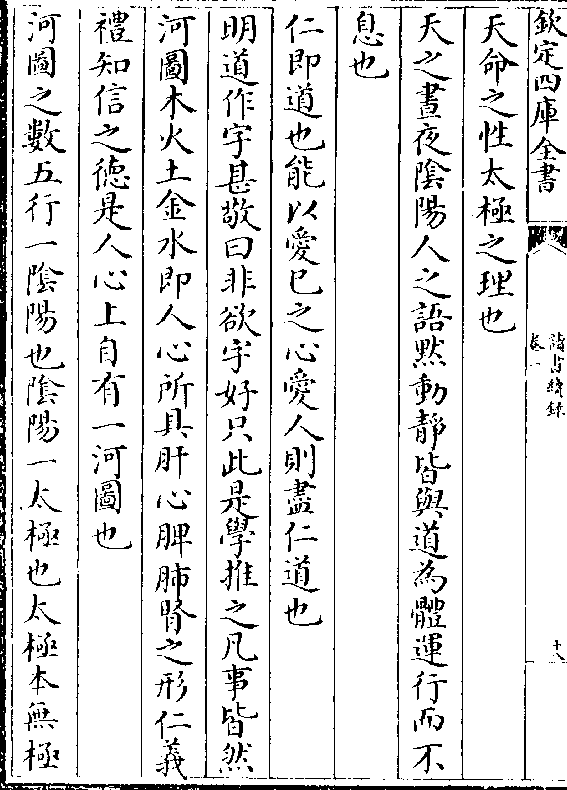 欽定四庫全書
讀書續錄
卷一
十八
天命之性太極之理也
天之晝夜陰陽人之語默動靜皆與道為體運行而不
息也
仁即道也能以愛已之心愛人則盡仁道也
明道作字甚敬曰非欲字好只此是學推之凡事皆然
河圖木火土金水即人心所具肝心脾肺腎之形仁義
禮知信之德是人心上自有一河圖也
河圖之數五行一陰陽也陰陽一太極也太極本無極